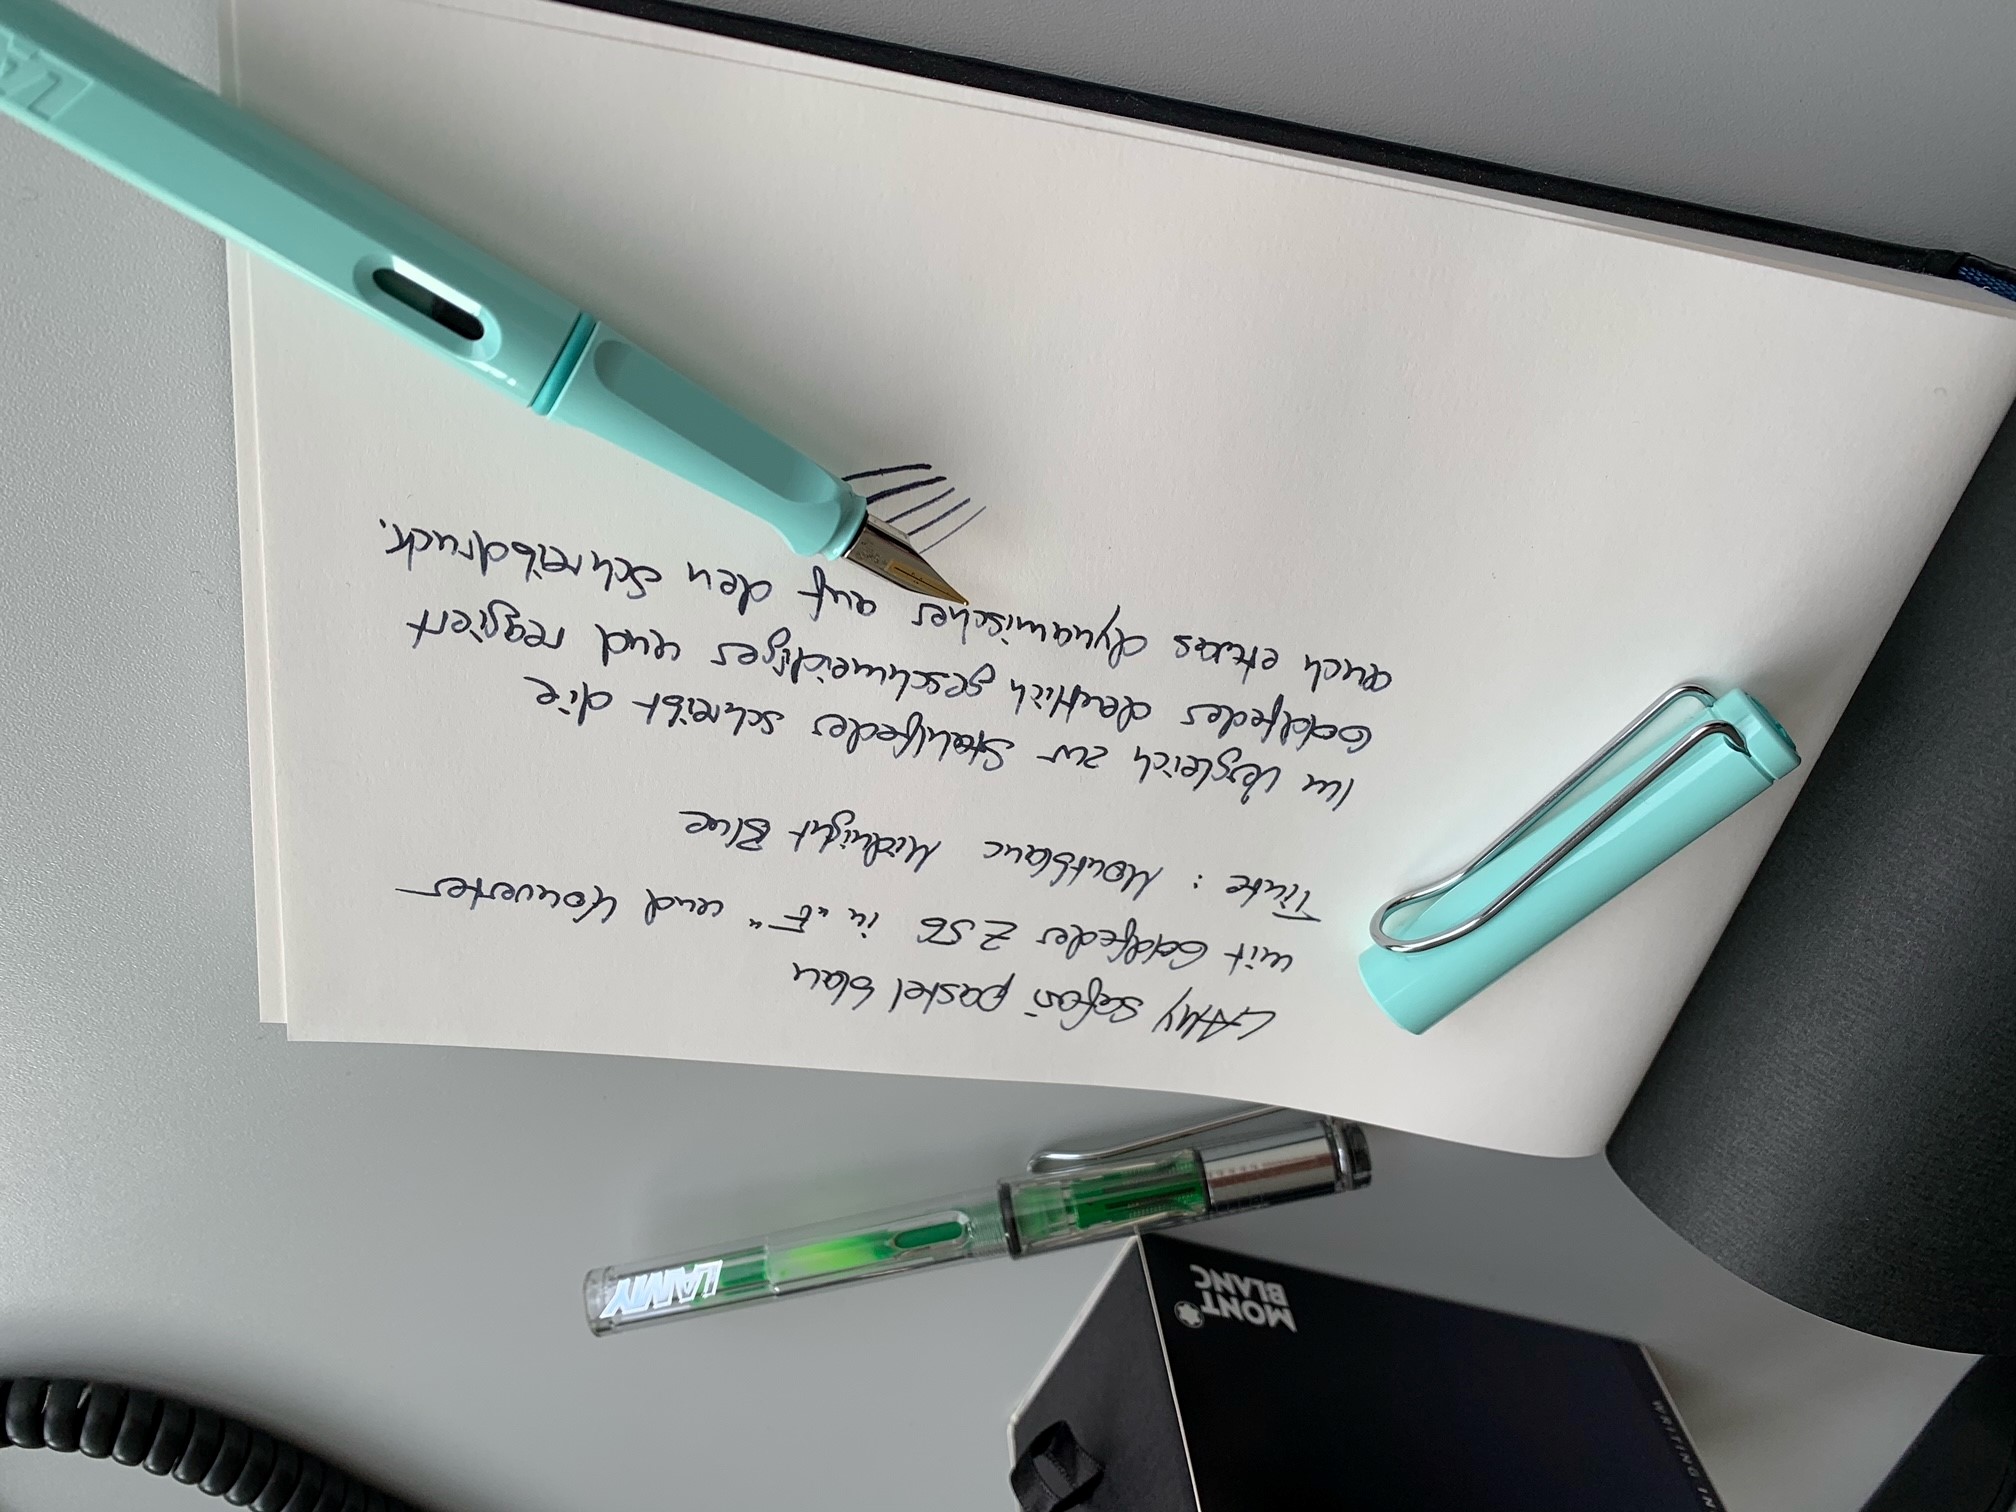 WRITING IN
MONT
BLANC
LAMY
LAMY safari pastel blau
mit Goldfeder Z56 in „F“ und Konverter
Tinte: Montblanc Midnight Blue
Im Vergleich zur Stahlfeder schreibt die
Goldfeder deutlich geschmeidiger und reagiert
auch etwas dynamischer auf den Schreibdruck.
LA